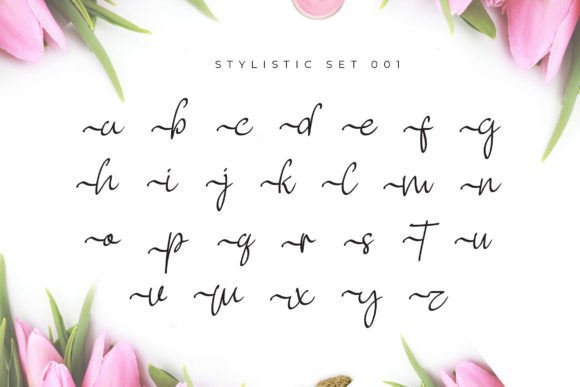 STYLISTIC SET 001
a b c d e f g
h i j k l m n
o p q r s t u
v w x y z